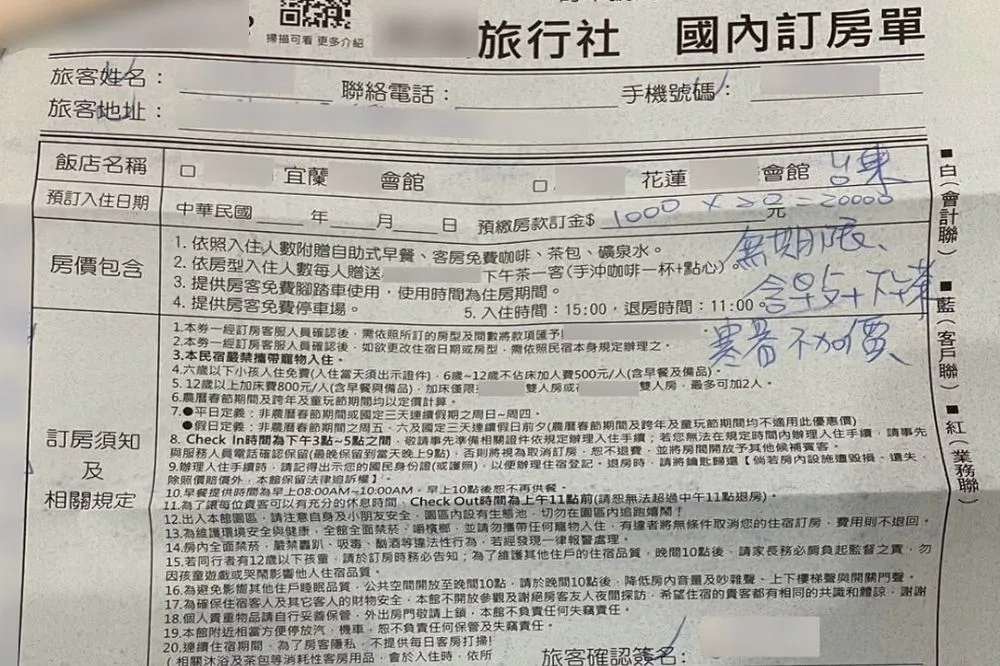 掃描可看 更多介紹
旅行社 國內訂房單
旅客姓名： 聯絡電話： 手機號碼：
旅客地址：
飯店名稱 □ 宜蘭 會館 □ 花蓮 會館 台東
預訂入住日期 中華民國 年 月 日 預繳房款訂金$ 1000 × 20 = 20000 元
房價包含
1. 依照入住人數附贈自助式早餐、客房免費咖啡、茶包、礦泉水。
2. 依房型入住人數每人贈送 下午茶一客(手沖咖啡一杯+點心)。
3. 提供房客免費腳踏車使用，使用時間為住房期間。
4. 提供房客免費停車場。 5. 入住時間：15:00，退房時間：11:00。
無期限、
含早歺+下午茶
寒暑不加價
訂房須知
及
相關規定
1.本券一經訂房客服人員確認後，需依照所訂的房型及間數將款項匯予
2.本券一經訂房客服人員確認後，如欲更改住宿日期或房型，需依照民宿本身規定辦理之。
3.本民宿嚴禁攜帶寵物入住。
4.六歲以下小孩入住免費(入住當天須出示證件)，6歲~12歲不佔床加人費500元/人(含早餐及備品)。
5. 12歲以上加床費800元/人(含早餐與備品)，加床僅限 雙人房或 雙人房，最多可加2人。
6.農曆春節期間及跨年及童玩節期間均以定價計算。
7.●平日定義：非農曆春節期間或國定三天連續假期之周日~周四。
●假日定義：非農曆春節期間之周五、六及國定三天連續假日前夕(農曆春節期間及跨年及童玩節期間均不適用此優惠價)
8. Check In時間為下午3點~5點之間，敬請事先準備相關證件依規定辦理入住手續；若您無法在規定時間內辦理入住手續，請事先
與服務人員電話確認保留(最晚保留到當天晚上9點)，否則將視為取消訂房，恕不退費，並將房間開放予其他候補賓客。
9.辦理入住手續時，請記得出示您的國民身份證(或護照)，以便辦理住宿登記。退房時，請將鑰匙歸還【倘若房內設施遭毀損、遺失、
除照價賠償外，本館保留法律追訴權】。
10.早餐提供時間為早上08:00AM~10:00AM，早上10點後恕不再供餐。
11.為了讓每位貴客可以有充分的休息時間，Check Out時間為上午11點前(請恕無法超過中午11點退房)。
12.出入本館園區，請注意自身及小朋友安全，園區內設有生態池，切勿在園區內追跑嬉鬧！
13.為維護環境安全與健康，全館全面禁菸，嚼檳榔，並請勿攜帶任何寵物入住，有違者將無條件取消您的住宿訂房，費用則不退回。
14.房內全面禁菸，嚴禁轟趴、吸毒、酗酒等違法性行為，若經發現一律報警處理。
15.若同行者有12歲以下孩童，請於訂房時務必告知；為了維護其他住戶的住宿品質，晚間10點後，請家長務必肩負起監督之責，勿
因孩童遊戲或哭鬧影響他人住宿品質。
16.為避免影響其他住戶睡眠品質，公共空間開放至晚間10點，請於晚間10點後，降低房內音量及吵雜聲、上下樓梯聲與開關門聲。
17.為確保住宿客人及其它客人的財物安全，本館不開放參觀及謝絕房客友人夜間探訪，希望住宿的貴客都有相同的共識和體諒，謝謝
18.個人貴重物品請自行妥善保管，外出房門敬請上鎖，本館不負責任何失竊責任。
19.本館附近相當方便停放汽，機車，恕不負責任何保管及失竊責任。
20.連續住宿期間，為了房客隱私，不提供每日客房打掃!
(相關沐浴及茶包等消耗性客房用品，會於入住時，依所
旅客確認簽名：
■白(會計聯) ■藍(客戶聯) ■紅(業務聯)